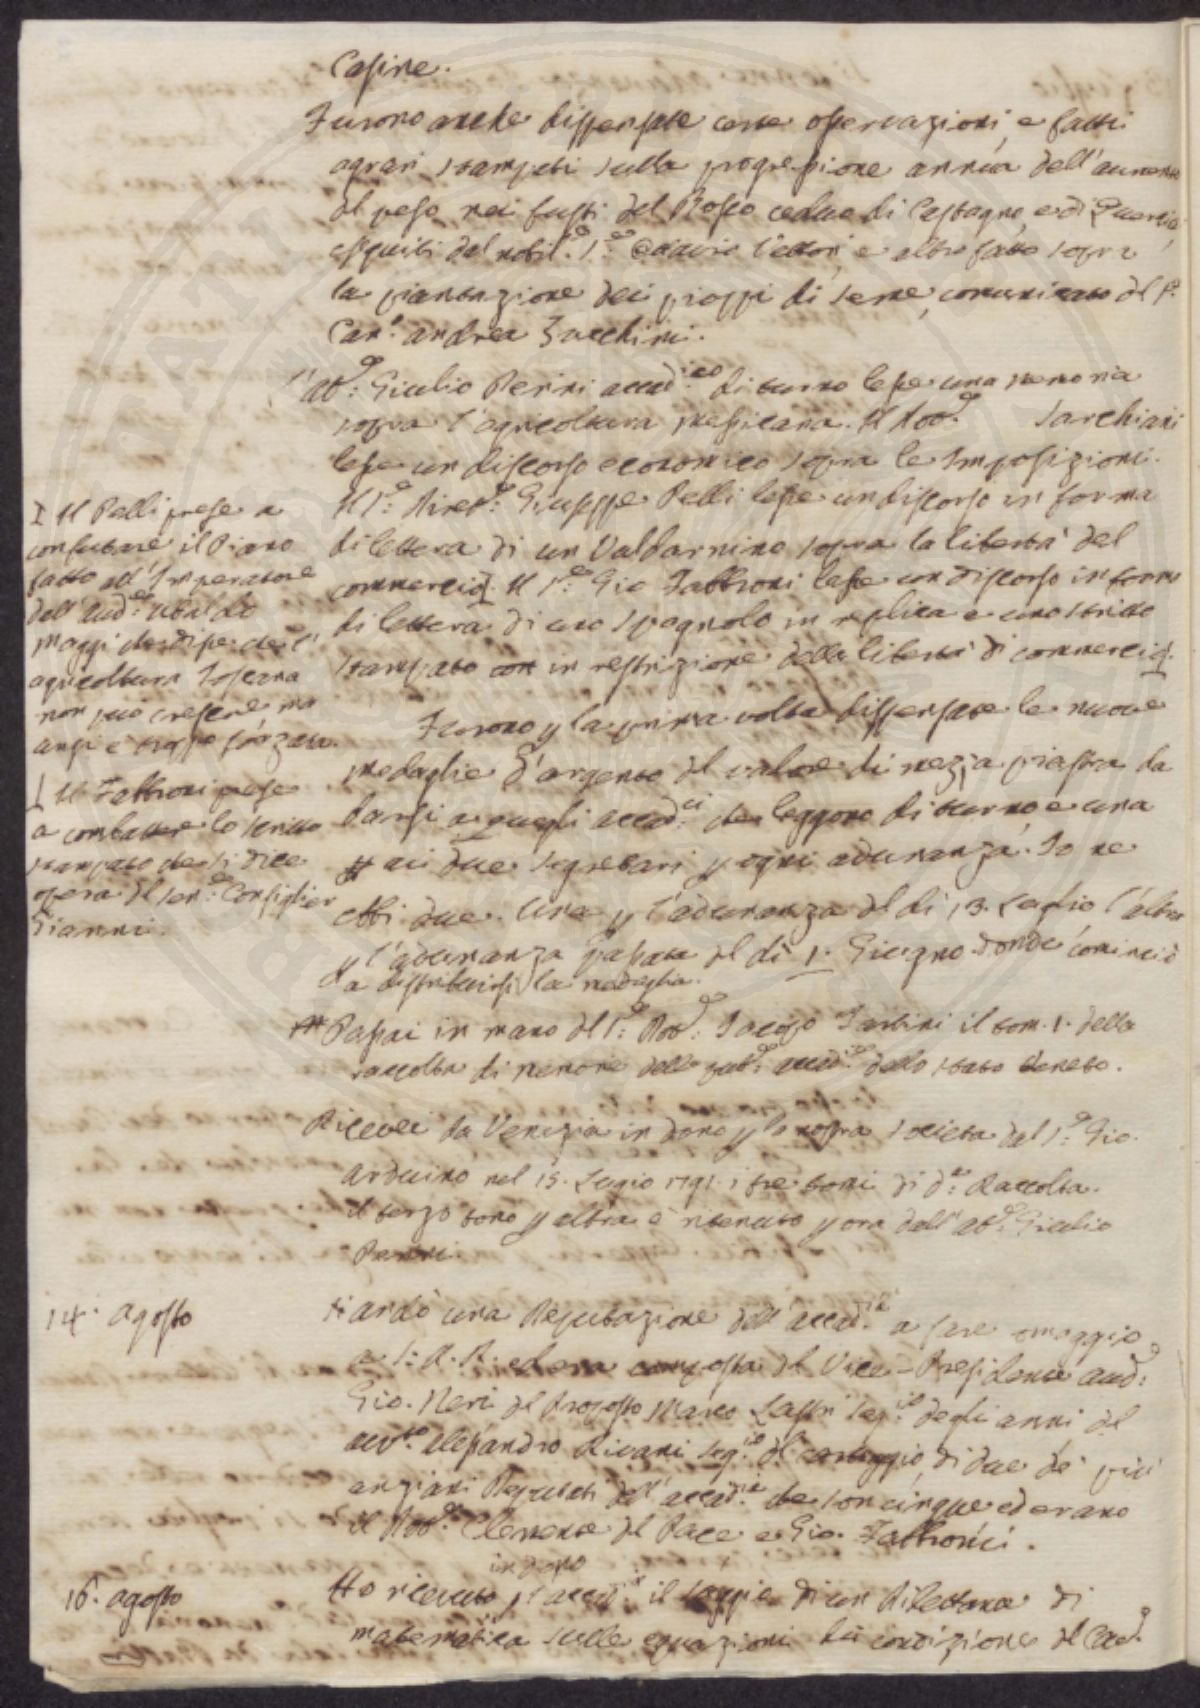 Casine.
Furono anche dispensate certe osservazioni, e fatti
agrari stampati sulla progressione annua dell'aumento
del peso nei fusti del Bosco ceduo di Castagno, e di Quercia,
eseguiti dal nobil. Sig.re Vettori, e altro fatto sopra
la piantazione dei pioppi di seme, comunicato dal S.r
Can.o Andrea Zucchini.
L'ab.e Giulio Perini accad.ico di turno lesse una memoria
sopra l'agricoltura messicana. Il Dott.e Sarchiani
lesse un discorso economico sopra le Imposizioni.
Il S.e Diret.e Giuseppe Pelli lesse un discorso in forma
di lettera di un Valdarnino sopra la libertà del
commercio. Il S.re Gio Fabbroni lesse un discorso in forma
di lettera di uno Spagnolo in replica a uno scritto
stampato in restrizione della libertà di commercio.
I Il Pelli prese a
confutare il Piano
fatto all'Imperatore
dell'Aud.re Ubaldo
Maggi che disse che l'
agricoltura Toscana
non può crescere ma
anzi è troppo forzata.
Il Fabbroni prese
a combatter lo scritto
stampato che si dice
opera del Sen.e Consiglier
Gianni.
Furono p la prima volta dispensate le nuove
medaglie d'argento del valore di mezza piastra da
darsi a quegli accad.ci che leggono di turno, e una
ai due segretari p ogni adunanza. Io ne
ebbi due. Una p l'adunanza del dì 13. Luglio l'altra
p l'adunanza passata del dì 1. Giugno donde cominciò
a distribuirsi la medaglia.
Passai in mano del S.e Dott.e Jacopo Tartini il tom. 1. della
raccolta di memorie delle pub.e accad.ie dello stato Veneto.
Ricevei da Venezia in dono p la nostra società dal S.e Gio.
Arduino nel 15. Lugio 1791. i tre tomi di d.a Raccolta.
il terzo tomo p altra è ritenuto p ora dall'ab.e Giulio
Perini.
14. agosto
Si andò una Deputazione dell'accad.ia a fare omaggio
a S. A. R. ed era composta del Vice-Presidente Aud.e
Gio. Neri del Proposto Marco Lastri Seg.io degli anni del
Alessandro Rivani Seg.io del carteggio, di due de' più
anziani Deputati dell'accad.ia che son cinque ed erano
il Dott.e Clemente del Pace e Gio. Fabbroni.
16. agosto
Ho ricevuto in dono p l'accad.ia il saggio di un Dilettante di
matematica sulle equazioni di condizione del Cad.e